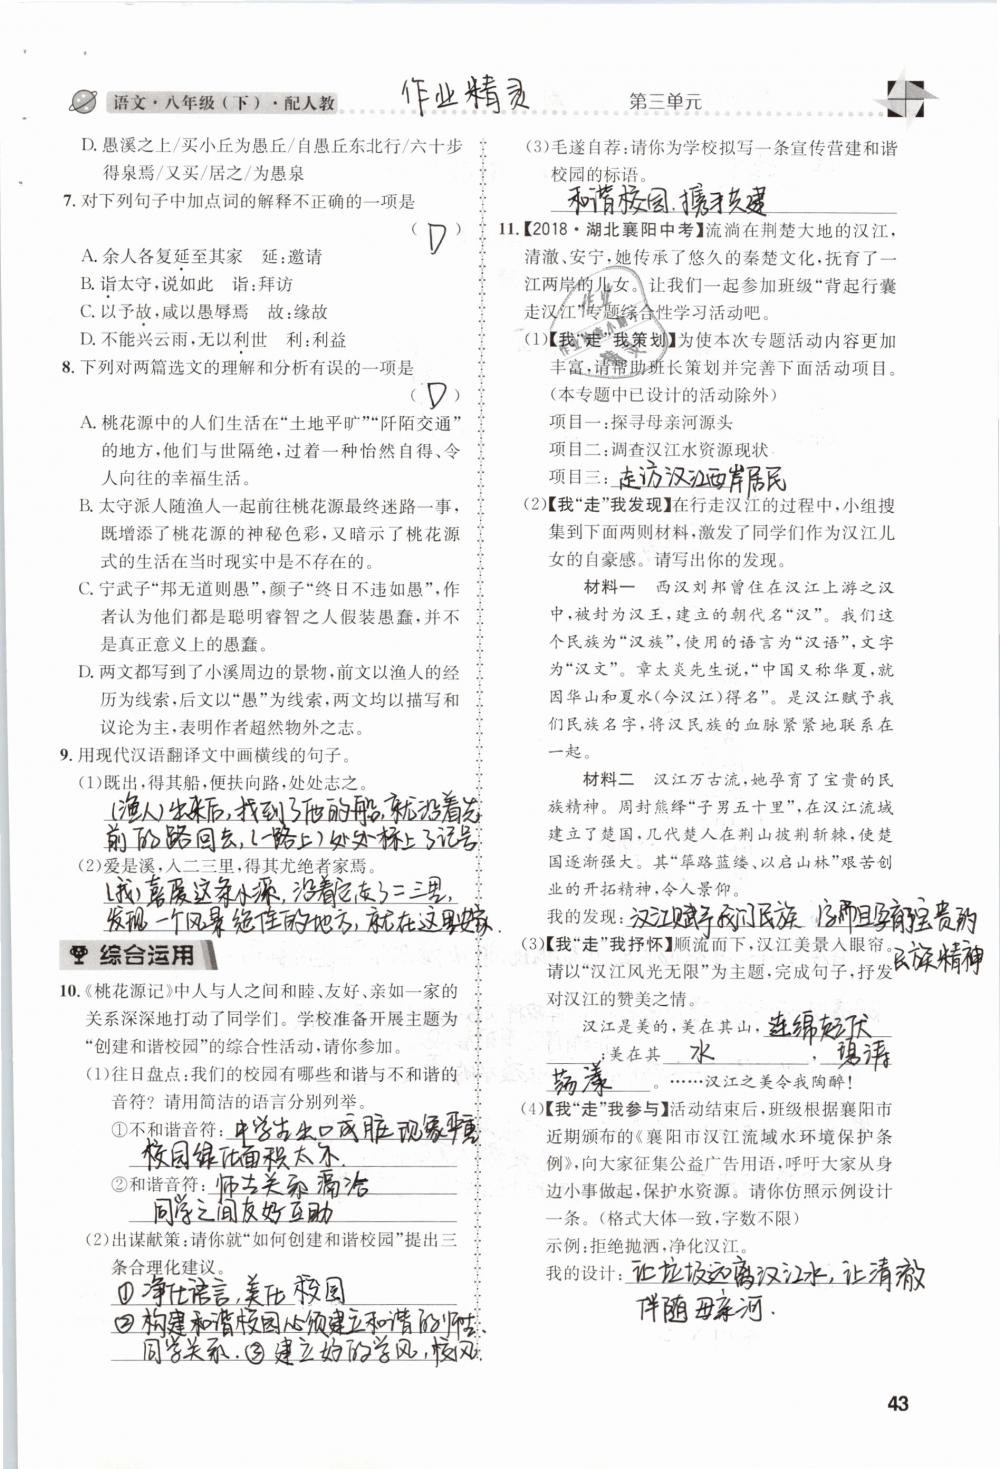 语文·八年级(下)·配人教
作业精灵
第三单元
D. 愚溪之上/买小丘为愚丘/自愚丘东北行/六十步
得泉焉/又买/居之/为愚泉
7. 对下列句子中加点词的解释不正确的一项是
( D )
A. 余人各复延至其家 延:邀请
B. 诣太守,说如此 诣:拜访
C. 以予故,咸以愚辱焉 故:缘故
D. 不能兴云雨,无以利世 利:利益
8. 下列对两篇选文的理解和分析有误的一项是
( D )
A. 桃花源中的人们生活在“土地平旷”“阡陌交通”
的地方,他们与世隔绝,过着一种怡然自得、令
人向往的幸福生活。
B. 太守派人随渔人一起前往桃花源最终迷路一事,
既增添了桃花源的神秘色彩,又暗示了桃花源
式的生活在当时是不存在的。
C. 宁武子“邦无道则愚”,颜子“终日不违如愚”,作
者认为他们都是聪明睿智之人假装愚蠢,并不
是真正意义上的愚蠢。
D. 两文都写到了小溪周边的景物,前文以渔人的经
历为线索,后文以“愚”为线索,两文均以描写和
议论为主,表明作者超然物外之志。
9. 用现代汉语翻译文中画横线的句子。
(1)既出,得其船,便扶向路,处处志之。
(渔人)出来后,找到了他的船,就沿着先
前的路回去,(一路上)处处标上了记号
(2)爱是溪,入二三里,得其尤绝者家焉。
(我)喜爱这条小溪,沿着它走了二三里,
发现一个风景绝佳的地方,就在这里安家.
综合运用
10.《桃花源记》中人与人之间和睦、友好、亲如一家的
关系深深地打动了同学们。学校准备开展主题为
“创建和谐校园”的综合性活动,请你参加。
(1)往日盘点:我们的校园有哪些和谐与不和谐的
音符? 请用简洁的语言分别列举。
①不和谐音符: 中学生出口成脏现象严重
校园绿化面积太小.
②和谐音符: 师生关系融洽
同学之间友好互助
(2)出谋献策:请你就“如何创建和谐校园”提出三
条合理化建议。
① 净化语言,美化校园
② 构建和谐校园必须建立和谐的师生、
同学关系.③ 建立好的学风,校风.
(3)毛遂自荐:请你为学校拟写一条宣传营建和谐
校园的标语。
和谐校园,携手共建
11.【2018·湖北襄阳中考】流淌在荆楚大地的汉江,
清澈、安宁,她传承了悠久的秦楚文化,抚育了一
江两岸的儿女。让我们一起参加班级“背起行囊
走汉江”专题综合性学习活动吧。
(1)【我“走”我策划】为使本次专题活动内容更加
丰富,请帮助班长策划并完善下面活动项目。
(本专题中已设计的活动除外)
项目一:探寻母亲河源头
项目二:调查汉江水资源现状
项目三: 走访汉江两岸居民
(2)【我“走”我发现】在行走汉江的过程中,小组搜
集到下面两则材料,激发了同学们作为汉江儿
女的自豪感。请写出你的发现。
材料一 西汉刘邦曾住在汉江上游之汉
中,被封为汉王,建立的朝代名“汉”。我们这
个民族为“汉族”,使用的语言为“汉语”,文字
为“汉文”。章太炎先生说,“中国又称华夏,就
因华山和夏水(今汉江)得名”。是汉江赋予我
们民族名字,将汉民族的血脉紧紧地联系在
一起。
材料二 汉江万古流,她孕育了宝贵的民
族精神。周封熊绎“子男五十里”,在汉江流域
建立了楚国,几代楚人在荆山披荆斩棘,使楚
国逐渐强大。其“筚路蓝缕、以启山林”艰苦创
业的开拓精神,令人景仰。
我的发现: 汉江赋予我们民族 而且孕育宝贵的
民族精神
(3)【我“走”我抒怀】顺流而下,汉江美景入眼帘。
请以“汉江风光无限”为主题,完成句子,抒发
对汉江的赞美之情。
汉江是美的,美在其山, 连绵起伏
;美在其 水 , 碧涛
荡漾 。……汉江之美令我陶醉!
(4)【我“走”我参与】活动结束后,班级根据襄阳市
近期颁布的《襄阳市汉江流域水环境保护条
例》,向大家征集公益广告用语,呼吁大家从身
边小事做起,保护水资源。请你仿照示例设计
一条。(格式大体一致,字数不限)
示例:拒绝抛洒,净化汉江。
我的设计: 让垃圾远离汉江水,让清澈
伴随母亲河.
43